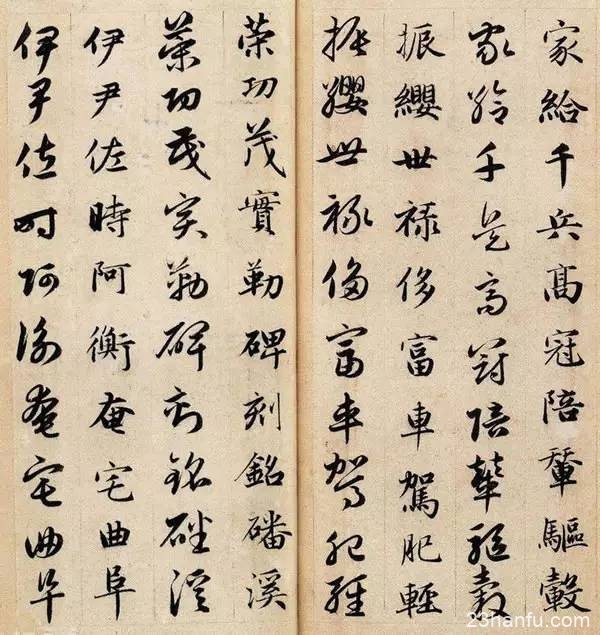 家給千兵高冠陪輦驅轂
家給千兵高冠陪輦驅轂
振纓世祿侈富車駕肥輕
振纓世祿侈富車駕肥輕
策功茂實勒碑刻銘磻溪
策功茂實勒碑刻銘磻溪
伊尹佐時阿衡奄宅曲阜
伊尹佐時阿衡奄宅曲阜
23hanfu.com